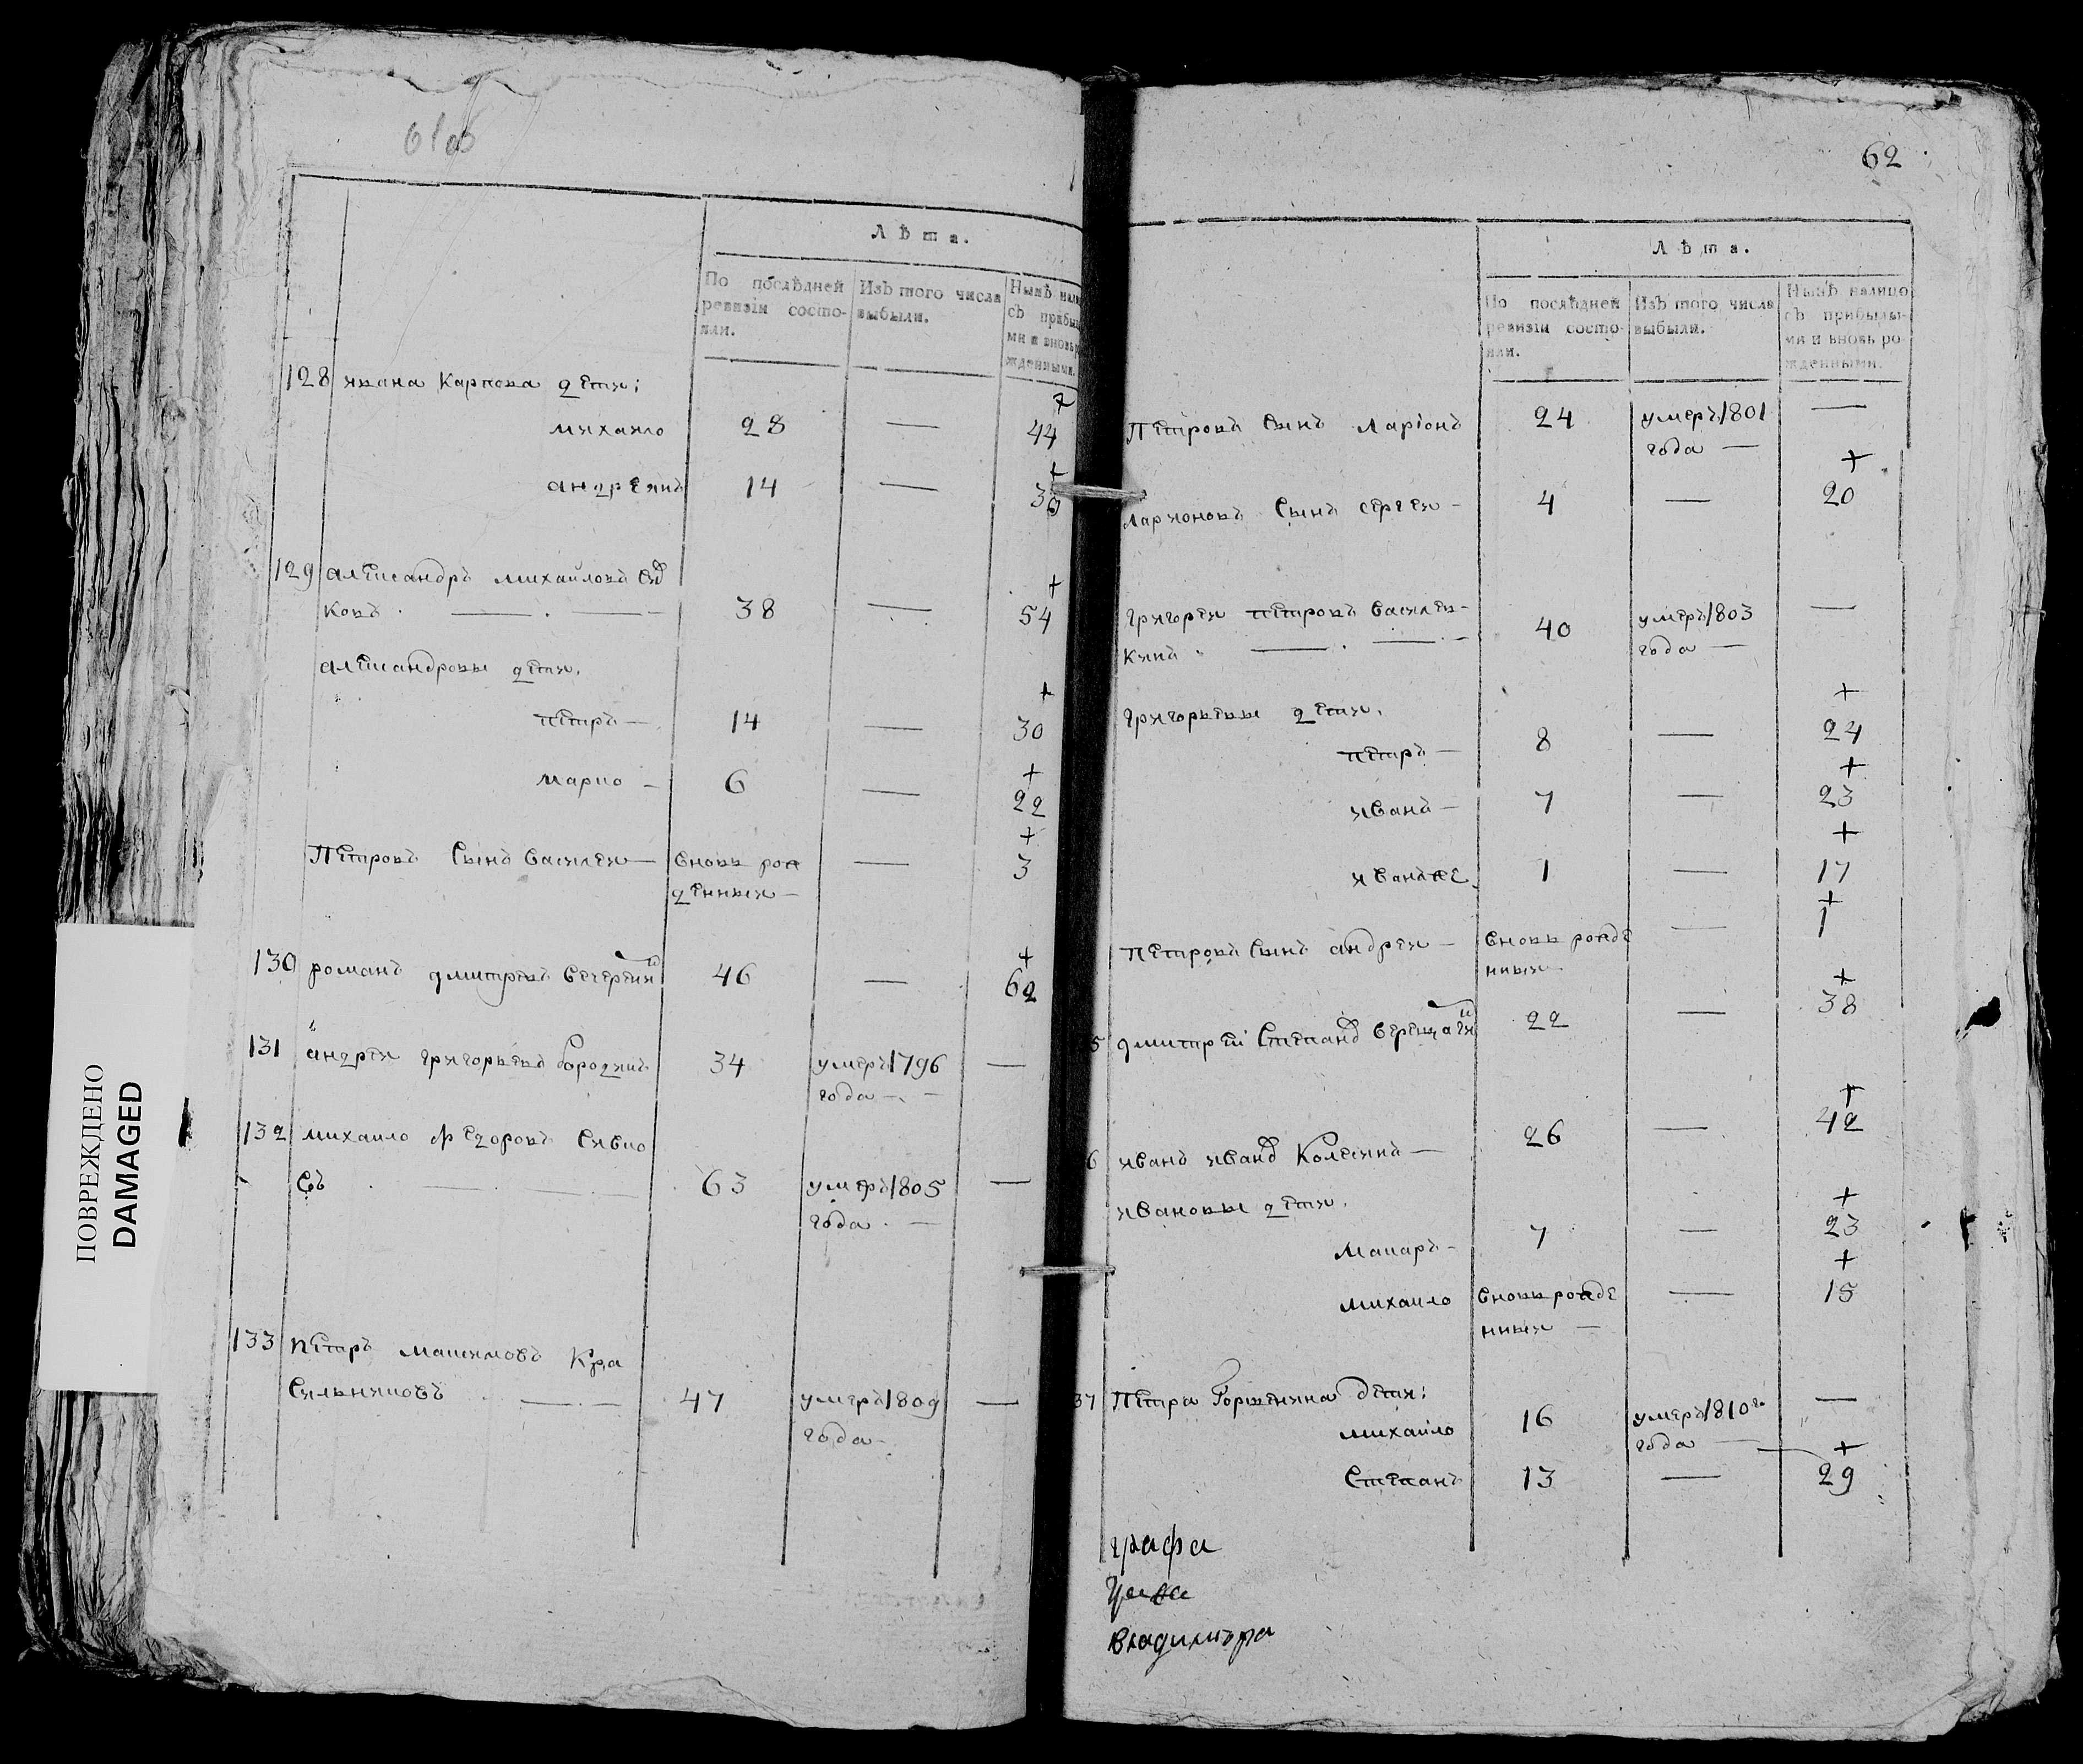 61об
Лѣта.
По послѣдней Изъ того числа Нынѣ нали
ревизіи состо- выбыли. съ прибы
яли. ми и вновь р
жденными.
128 ивана Карпова дети:
михаило 28 — 44
андреянъ 14 — 30
129 александръ михаиловъ
ковъ — 38 — 54
александровы дети,
петръ — 14 — 30
марко — 6 — 22
Петровъ сынъ василеи — вновь рож — 3
денныи —
130 романъ дмитревъ 46 — 62
131 андреи григорьевъ бородинъ 34 умеръ 1796 —
года —
132 михаило федоровъ
въ — 63 умеръ 1805 —
года —
133 петръ максимовъ Кра
сильниковъ — 47 умеръ 1809 —
года —
62
Лѣта.
По послѣдней Изъ того числа Нынѣ налицо
ревизіи состо- выбыли. съ прибылы-
яли. ми и вновь ро-
жденными.
Петровъ сынъ Ларіонъ 24 умеръ 1801 —
года —
Ларионовъ сынъ сергеи — 4 — 20
григореи петровъ василев-
кинъ — 40 умеръ 1803 —
года —
григорьевы дети,
петръ — 8 — 24
иванъ — 7 — 23
иванже 1 — 17
петровъ сынъ андреи — вновь рожде — 1
нныи
5 дмитреи степанов верещагин 22 — 38
6 иванъ иванов Колесинъ — 26 — 42
ивановы дети,
макаръ — 7 — 23
михаило вновь рожде — 15
нныи —
37 Петра Горшенина дети:
михаило 16 умеръ 1810го —
года —
степанъ 13 — 29
графа
владимира
ПОВРЕЖДЕНО
DAMAGED